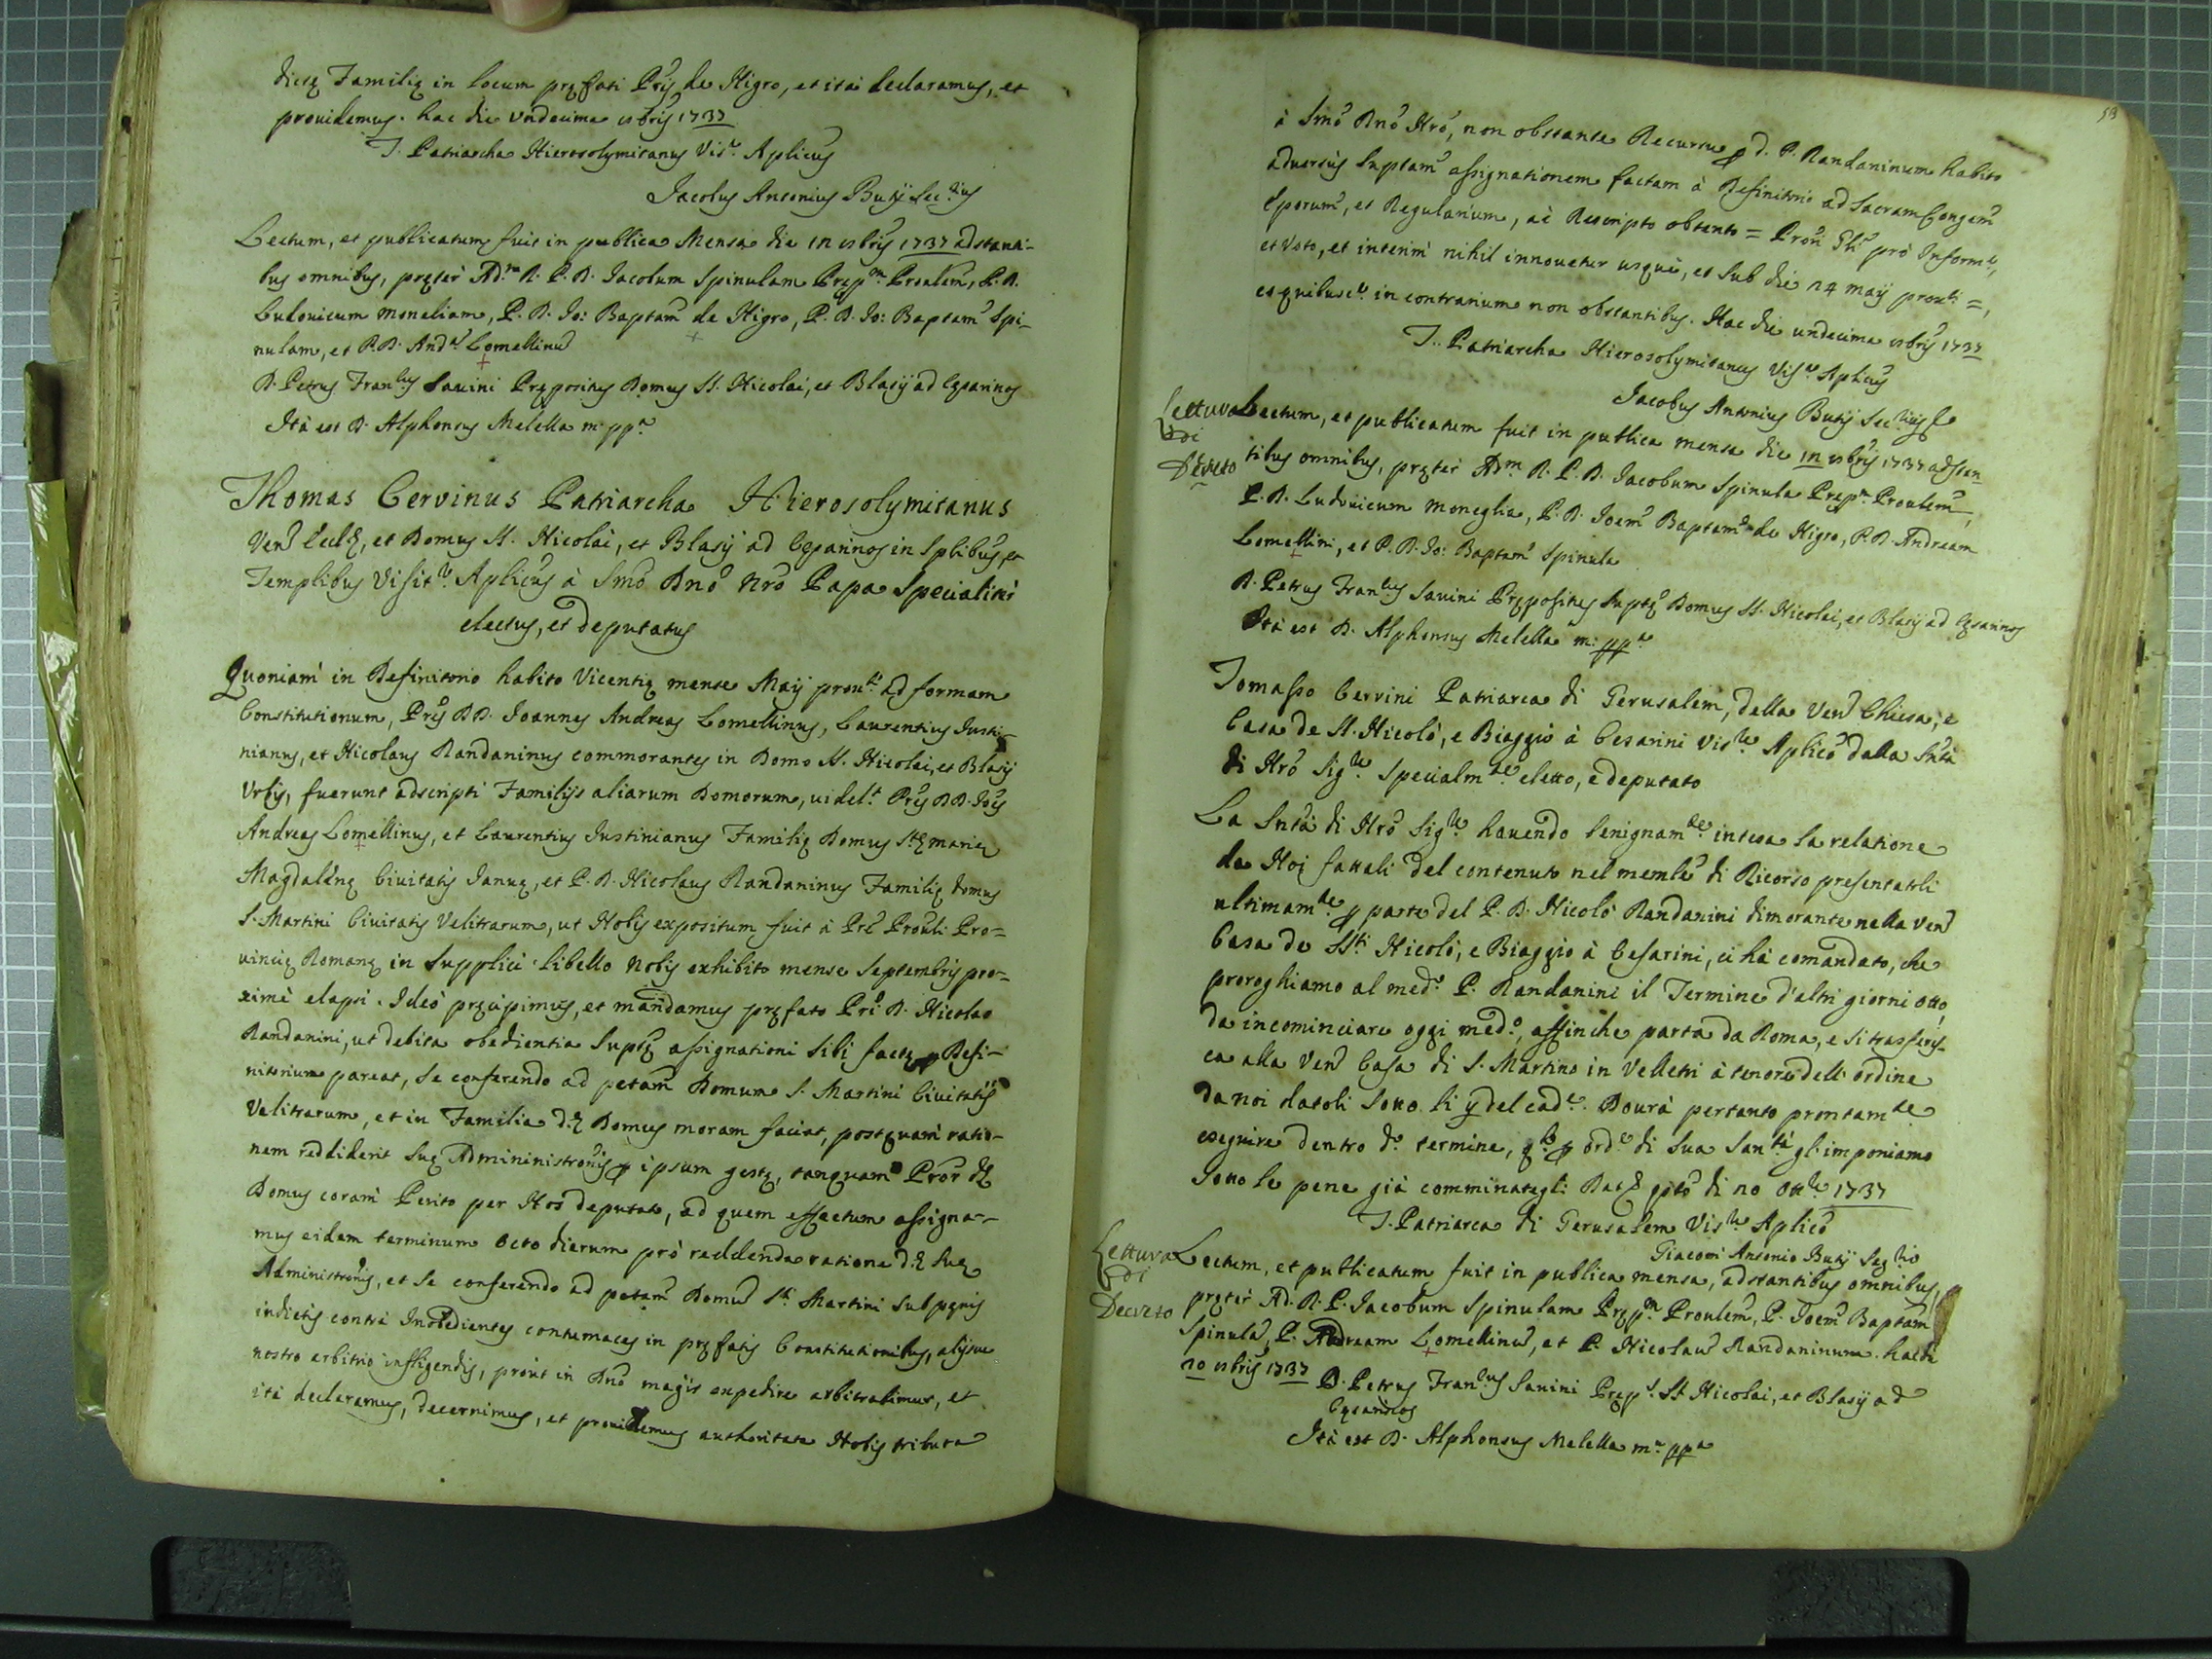 dictę Familię in locum pręfati Pris de Nigro, et ita declaramus, et
prouidemus. hac die undecima 8bris 1737
T. Patriarcha Hierosolymitanus Vis.r Aplicus
Jacobus Antonius Butij Sec.rius
Lectum, et publicatum fuit in publica Mensa die 12 8bris 1737 adstanti-
bus omnibus, pręter Ad.m R. P. D. Jacobum Spinulam Pręp.m Proalem, P. D.
Ludouicum moneliam, P. D. Jo: Baptam de Nigro, P. D. Jo: Baptam Spi-
nulam, et P. D. And.m Lomellinu
D. Petrus Fran.cus Sauini Prępositus Domus SS. Nicolai, et Blasij ad Cęsarinos
Ità est D. Alphonsus Melella m. ppa
Thomas Cervinus Patriarcha Hierosolymitanus
Ven Eccłę, et Domus SS. Nicolai, et Blasij ad Cęsarinos in Splibus, et
Templibus Visit.r Aplicus à Smo Dno Nro Papa Specialiter
electus, et deputatus
Quoniam in Definitorio habito Vicentię mense Maij prox.ti ad formam
Constitutionum, Pres DD. Joannes Andreas Lomellinus, Laurentius Justi-
nianus, et Nicolaus Randaninus commorantes in Domo SS. Nicolai, et Blasij
Urbis, fuerunt adscripti Familijs aliarum Domorum, uidel.t Pres DD. Joes
Andreas Lomellinus, et Laurentius Justinianus Familię Domus Stę marię
Magdalenę Ciuitatis Januę, et P. D. Nicolaus Randaninus Familię domus
S. Martini Ciuitatis Velitrarum, ut Nobis expositum fuit à Pre Proali Pro=
uincię Romanę in supplici libello nobis exhibito mense Septembris pro=
ximè elapsi. Ideò pręcipimus, et mandamus pręfato Pri D. Nicolao
Randanini, ut debita obedientia Suptę assignationi sibi factę p Defi-
nitorium pareat, se conferendo ad pctam Domum S. Martini Ciuitatis
Velitrarum, et in Familia d.ę Domus moram faciat, postquam ratio-
nem reddiderit suę Admininistronis p ipsum gestę, tanquam Pror dę
Domus coram Perito per Nos deputato, ad quem effectum assigna-
mus eidem terminum octo dierum pro reddenda ratione d.ę suę
Administronis, et se conferendo ad pctam Domu Sti Martini sub pęnis
indictis contra Inobedientes contumaces in pręfatis Constitutionibus, alijsue
nostro arbitrio infligendis, prout in Dno magis expedire arbitrabimur, et
ità declaramus, decernimus, et prouidemus authoritate Nobis tributa
53
à Smo Dno Nro, non obstante Recursu p d. P. Randaninum habito
aduersus Suptam assignationem factam à Definitorio ad Sacram Congem
Eporum, et Regularium, ac Rescripto obtento = Prori Gli pro Inform.e,
et Voto, et interim nihil innouetur usque, et sub die 24 maij prox.ti =,
ceq quibusc.e in contrarium non obstantibus. Hac die undecima 8bris 1737
T. Patriarcha Hierosolymitanus Vis.r Aplicus
Jacobus Antonius Butij Sec.rius
Lettura
di
Decreto
Lectum, et publicatum fuit in publica mensa die 12 8bris 1737 adstan-
tibus omnibus, pręter Adm. R. P. D. Jacobum Spinula Pręp.m Proalem,
P. D. Ludouicum moneglia, P. D. Joem Baptam de Nigro, P. D. Andream
Lomellini, et P. D. Jo: Baptam Spinula
D. Petrus Fran.cus Sauini Prępositus Suptę Domus SS. Nicolai, et Blasij ad Cęsarinos
Ità est D. Alphonsus Melella m: ppa
Tomasso Cervini Patriarca di Gerusalem, della Ven Chiesa, e
Casa de SS. Nicolò, e Biaggio à Cesarini Vis.re Aplico dalla Sntà
di Nro Sig.re specialm.te eletto, e deputato
La Sntà di Nro Sig.re hauendo benignam.te intesa la relatione
da Noi fattali del contenuto nel memle di Ricorso presentatoli
ultimam.te p parte del P. D. Nicolò Randanini dimorante nella Ven
Casa de SSti Nicolò, e Biaggio à Cesarini, ci hà comandato, che
proroghiamo al med.o P. Randanini il Termine d'altri giorni otto,
da incominciare oggi med.o, affinche parta da Roma, e si trasferis-
ca alla Ven Casa di S. Martino in Velletri à tenore dell'ordine
da noi datoli sotto li 9 del cad.e. Dourà pertanto prontam.te
eseguire dentro d.o termine, q.to p ord.e di Sua San.tà gl'imponiamo
sotto le pene già comminategli. Datę qsto di 20 Ott.e 1737
T. Patriarca di Gerusalem Vis.re Aplico
Giacom Antonio Butij Seg.rio
Lettura
di
Decreto
Lectum, et publicatum fuit in publica mensa, adstantibus omnibus,
pręter Ad. R. P. Jacobum Spinulam Pręp.m Proulem, P. Joem Baptam
Spinula, P. Andream Lomellinu, et P. Nicolau Randaninum. hac die
20 8bris 1737
D. Petrus Fran.cus Sauini Pręp.s SS Nicolai, et Blasij ad
Cęsarinos
Ità est D. Alphonsus Melella m.a ppa